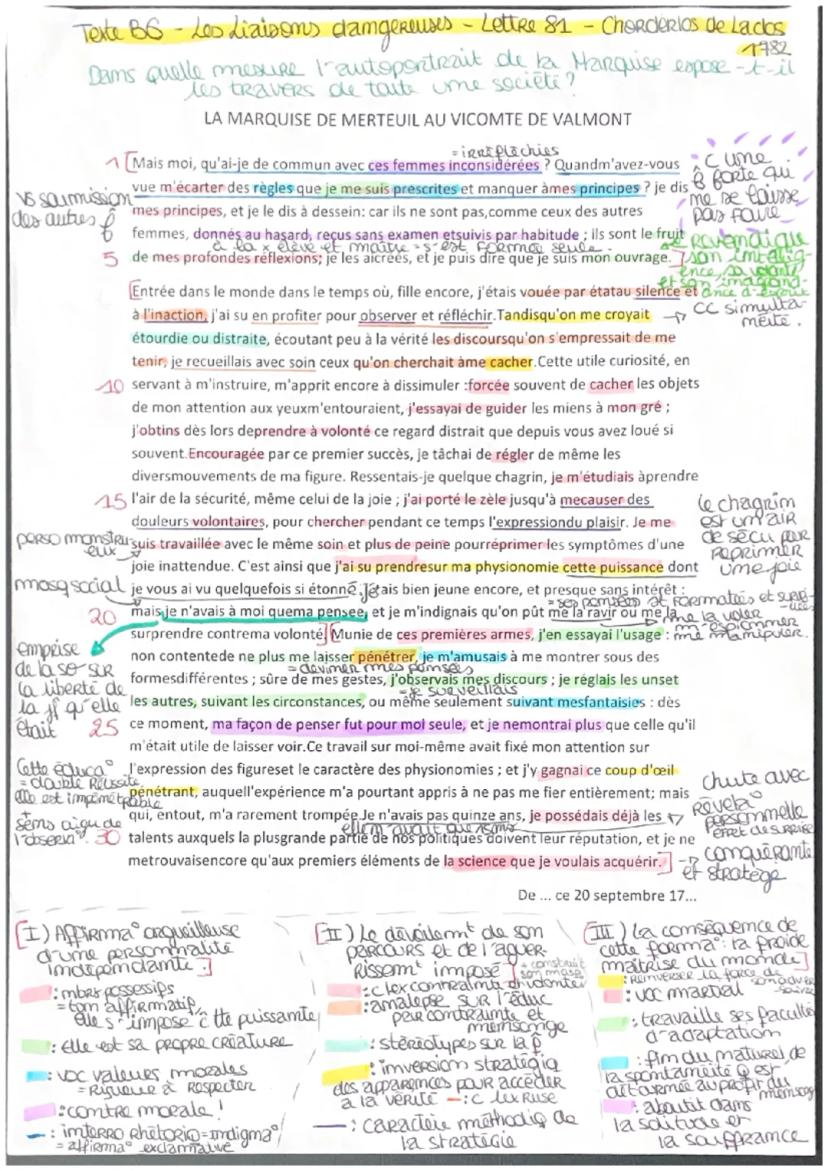 Texte B6 - Les Liaisons dangereuses - Lettre 81 - Choderlos de Laclos
1782
Dans quelle mesure l'autoportrait de la Marquise expose-t-il
les travers de toute une société ?
LA MARQUISE DE MERTEUIL AU VICOMTE DE VALMONT
= irréfléchies
1 [Mais moi, qu'ai-je de commun avec ces femmes inconsidérées ? Quandm'avez-vous
vue m'écarter des règles que je me suis prescrites et manquer àmes principes ? je dis
mes principes, et je le dis à dessein: car ils ne sont pas,comme ceux des autres
femmes, donnés au hasard, reçus sans examen etsuivis par habitude ; ils sont le fruit
à la x élève et maître = s'est formée seule.
5 de mes profondes réflexions; je les aicréés, et je puis dire que je suis mon ouvrage.]
vs soumission
des autres f
c une
f forte qui
ne se laisse
pas faire
se revendique
son intellig-
ence
[Entrée dans le monde dans le temps où, fille encore, j'étais vouée par étatau silence et
à l'inaction, j'ai su en profiter pour observer et réfléchir.Tandisqu'on me croyait
→ CC simulta-
néité.
étourdie ou distraite, écoutant peu à la vérité les discoursqu'on s'empressait de me
tenir, je recueillais avec soin ceux qu'on cherchait àme cacher.Cette utile curiosité, en
10 servant à m'instruire, m'apprit encore à dissimuler :forcée souvent de cacher les objets
de mon attention aux yeuxm'entouraient, j'essayai de guider les miens à mon gré ;
j'obtins dès lors deprendre à volonté ce regard distrait que depuis vous avez loué si
souvent.Encouragée par ce premier succès, je tâchai de régler de même les
diversmouvements de ma figure. Ressentais-je quelque chagrin, je m'étudiais àprendre
15 l'air de la sécurité, même celui de la joie ; j'ai porté le zèle jusqu'à mecauser des
douleurs volontaires, pour chercher pendant ce temps l'expressiondu plaisir. Je me
suis travaillée avec le même soin et plus de peine pourréprimer les symptômes d'une
joie inattendue. C'est ainsi que j'ai su prendresur ma physionomie cette puissance dont
je vous ai vu quelquefois si étonné.J'étais bien jeune encore, et presque sans intérêt :
= ses pensées st formatées et
20 mais je n'avais à moi quema pensee, et je m'indignais qu'on pût me la ravir ou me la
surprendre contrema volonté.] [Munie de ces premières armes, j'en essayai l'usage :
non contentede ne plus me laisser pénétrer, je m'amusais à me montrer sous des
= deviner mes pensées
formesdifférentes ; sûre de mes gestes, j'observais mes discours ; je réglais les unset
= je surveillais
les autres, suivant les circonstances, ou même seulement suivant mesfantaisies : dès
25 ce moment, ma façon de penser fut pour moi seule, et je nemontrai plus que celle qu'il
m'était utile de laisser voir.Ce travail sur moi-même avait fixé mon attention sur
l'expression des figureset le caractère des physionomies ; et j'y gagnai ce coup d'œil
pénétrant, auquell'expérience m'a pourtant appris à ne pas me fier entièrement; mais
qui, entout, m'a rarement trompée.Je n'avais pas quinze ans, je possédais déjà les
30 talents auxquels la plusgrande partie de nos politiques doivent leur réputation, et je ne
metrouvaisencore qu'aux premiers éléments de la science que je voulais acquérir.]
De ... ce 20 septembre 17...
perso monstru-
eux
masq social
emprise
de la so sur
la liberté de
la jf qu'elle
était
Cette éduca°
= double réussite,
elle est impénétrable
+
sens aigu de
l'observa°.
le chagrin
est un air
de sécu par
réprimer
une joie
me la voler
me espionner
me manipuler.
chute avec
révéla°
personnelle
effet de surprise
→ conquérante
et stratège
[I) Affirma° orgueilleuse
d'une personnalité
indépendante.]
: mbrx possessifs
= ton affirmatif,
elle s'impose c tte puissante
: elle est sa propre créature
: voc valeurs morales
= rigueur à respecter
: contre morale !
: interro rhétoriq = indigna°
= affirma° exclamative
[II) Le dévoilem^t de son
parcours et de l'aguer-
rissem^t imposé]
+ construit
son masq
: c lex contrainte et volonté
: analepse sur l'éduc
par contrainte et
mensonge
: stéréotypes sur la f
: inversion stratégiq
des apparences pour accéder
à la vérité - : c lex ruse
: caractère méthodiq de
la stratégie
[III) La conséquence de
cette forma° : la froide
maîtrise du monde]
: renverser la force de
son adver-
saire
: voc martial
: travaille ses facultés
d'adaptation
: fin du naturel de
la spontanéité q est
au profit du
mensonge
: aboutit dans
la solitude et
la souffrance